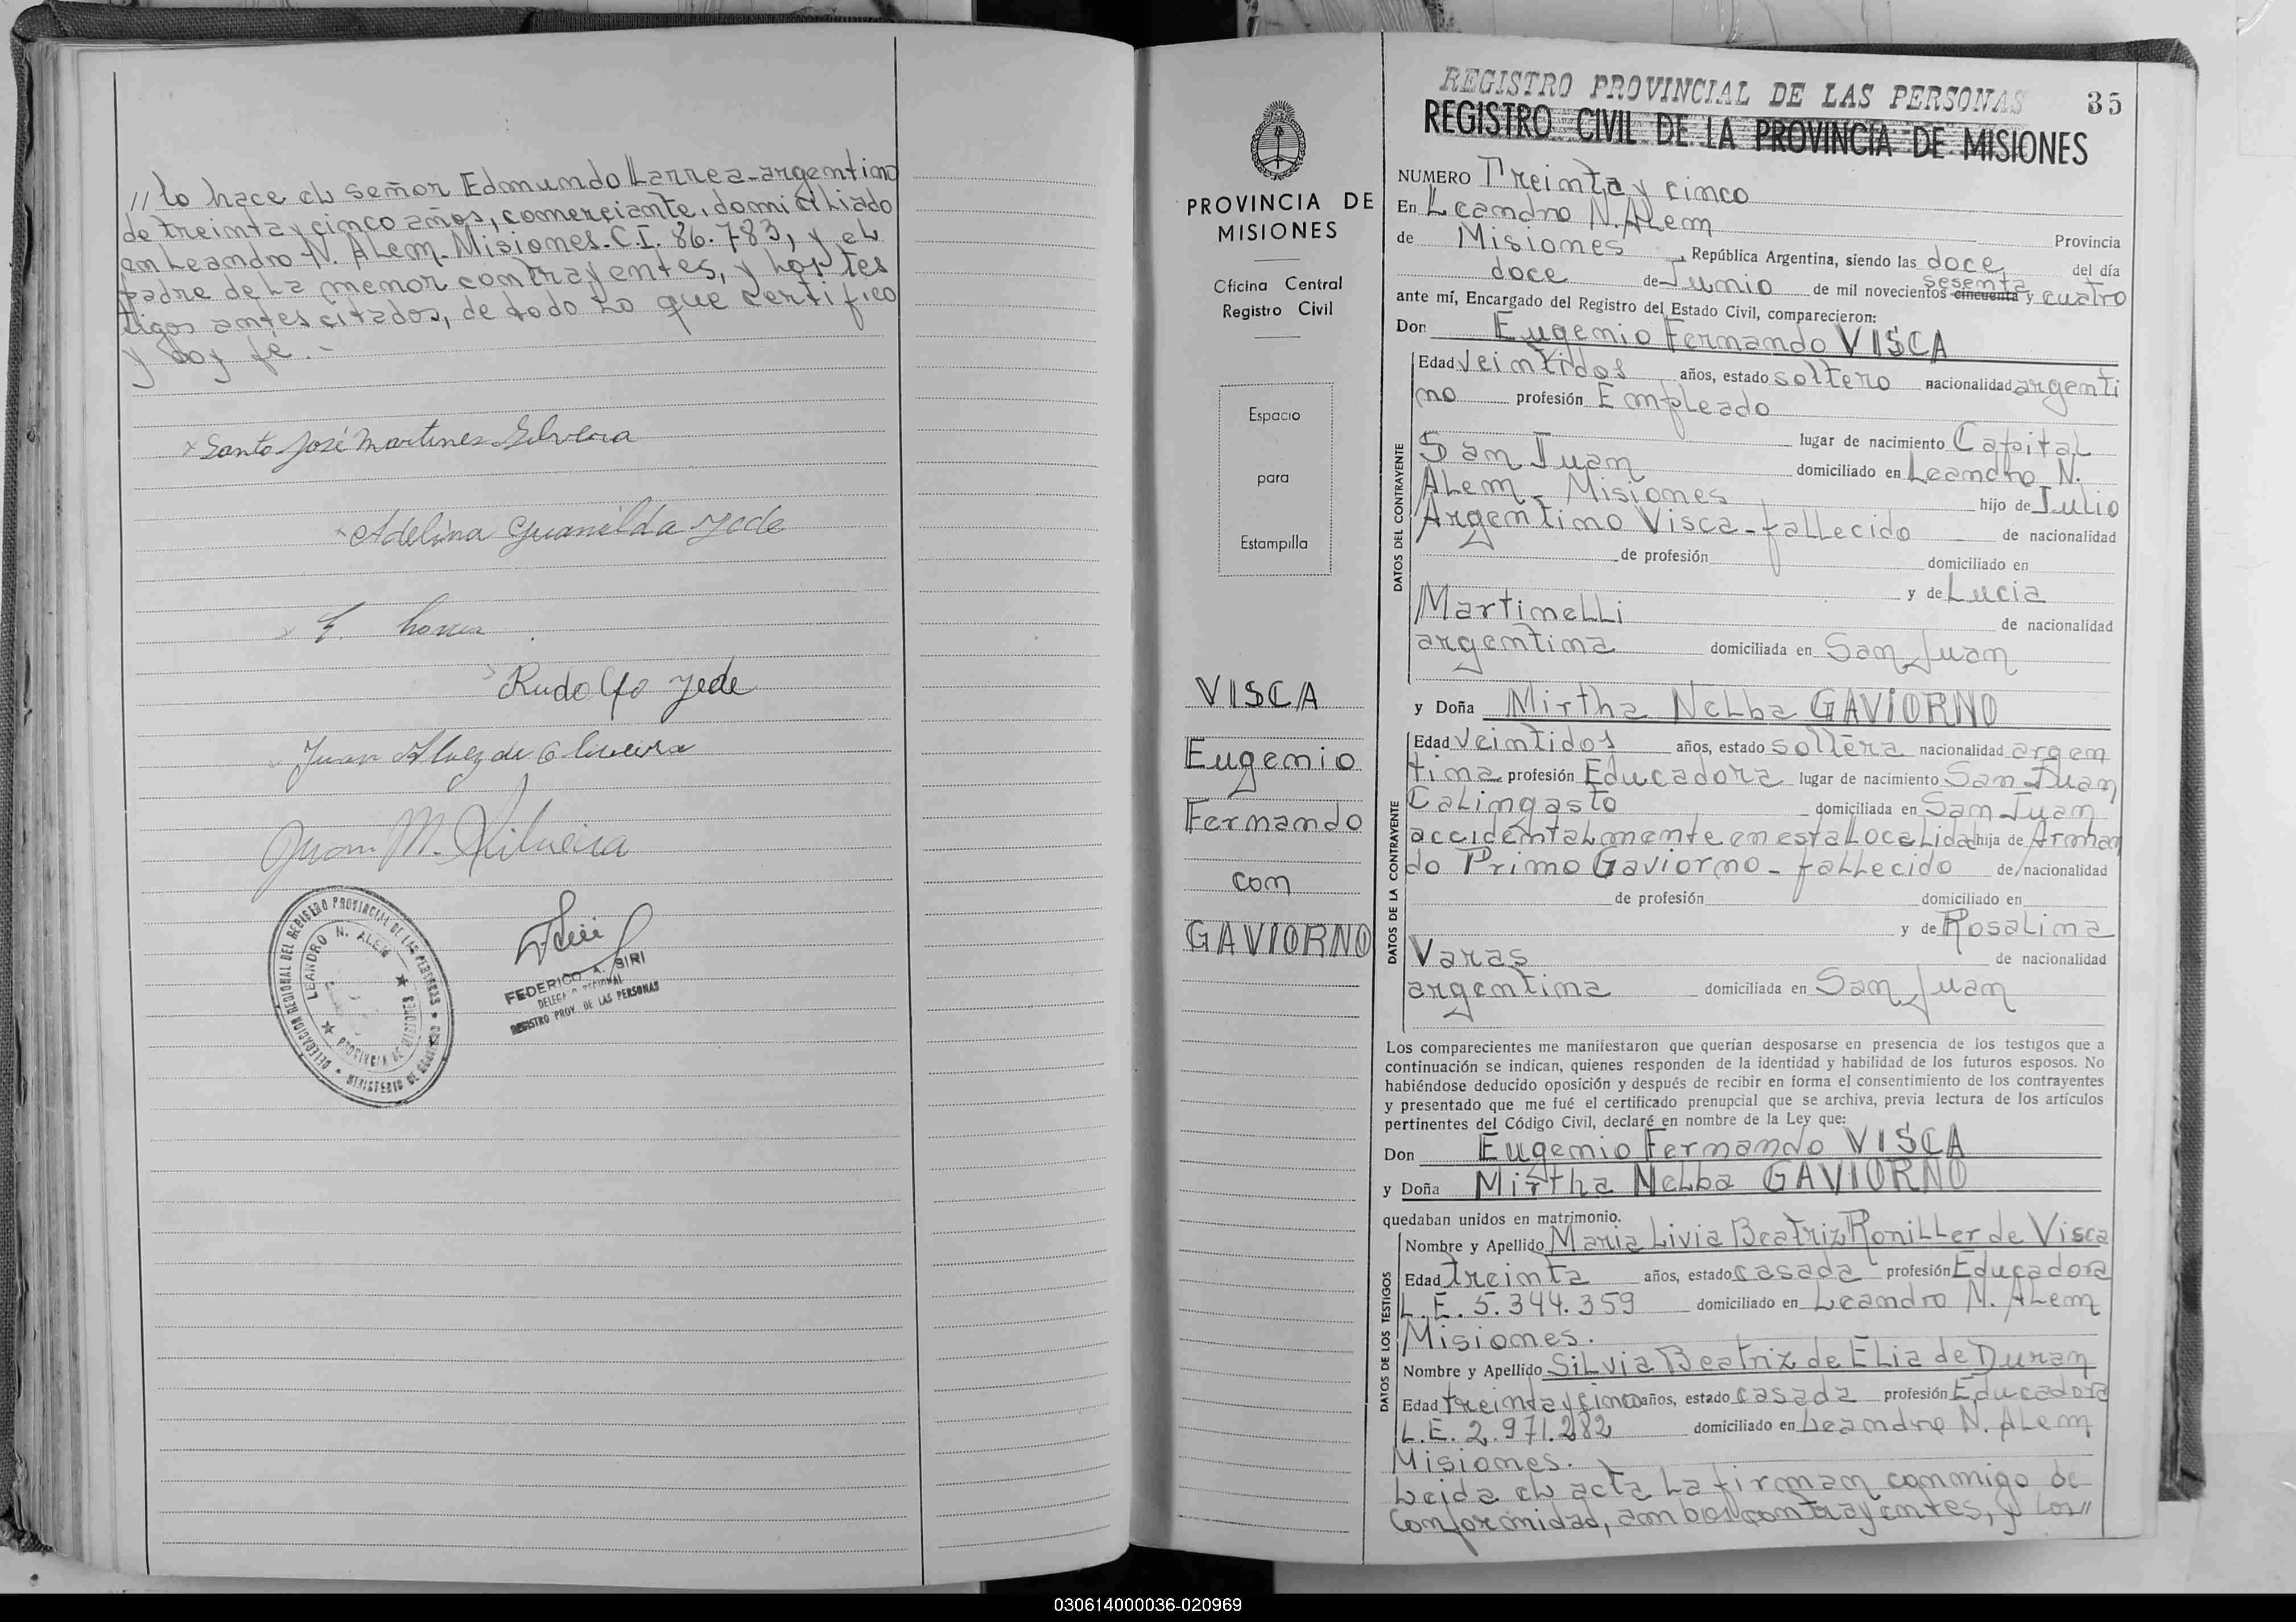 // lo hace el señor Edmundo Larrea-argentino
de treinta y cinco años, comerciante, domiciliado
en Leandro N. Alem. Misiones. C.I. 86.783, y el
padre de la menor contrayentes, y los tes
tigos antes citados, de todo lo que certifico
y doy fe.-
x Santo José Martines Silveira
Adelina Guanilda Jede
Rudolfo Jede
Juan Alvez de Oliveira
Juan M. Silveira
DELEGACION REGIONAL DEL REGISTRO PROVINCIAL DE LAS PERSONAS
MINISTERIO DE GOBIERNO
LEANDRO N. ALEM
PROVINCIA DE MISIONES
FEDERICO A. SIRI
DELEGADO REGIONAL
REGISTRO PROV. DE LAS PERSONAS
PROVINCIA DE
MISIONES
Oficina Central
Registro Civil
Espacio
para
Estampilla
VISCA
Eugenio
Fernando
con
GAVIORNO
REGISTRO PROVINCIAL DE LAS PERSONAS
35
REGISTRO CIVIL DE LA PROVINCIA DE MISIONES
NUMERO Treinta y cinco
En Leandro N. Alem
Provincia
de Misiones, República Argentina, siendo las doce del día
doce de Junio de mil novecientos cincuenta sesenta y cuatro
ante mí, Encargado del Registro del Estado Civil, comparecieron:
Don Eugenio Fernando VISCA
DATOS DEL CONTRAYENTE
Edad veintidos años, estado soltero nacionalidad argenti
no profesión Empleado
lugar de nacimiento Capital
San Juan domiciliado en Leandro N.
Alem - Misiones hijo de Julio
Argentino Visca - fallecido de nacionalidad
de profesión domiciliado en
y de Lucia
Martinelli de nacionalidad
argentina domiciliada en San Juan
y Doña Mirtha Nelba GAVIORNO
DATOS DE LA CONTRAYENTE
Edad veintidos años, estado soltera nacionalidad argen
tina profesión Educadora lugar de nacimiento San Juan
Calingasto domiciliada en San Juan
accidentalmente en esta localidad hija de Arman
do Primo Gaviorno - fallecido de nacionalidad
de profesión domiciliado en
y de Rosalina
Varas de nacionalidad
argentina domiciliada en San Juan
Los comparecientes me manifestaron que querían desposarse en presencia de los testigos que a
continuación se indican, quienes responden de la identidad y habilidad de los futuros esposos. No
habiéndose deducido oposición y después de recibir en forma el consentimiento de los contrayentes
y presentado que me fué el certificado prenupcial que se archiva, previa lectura de los artículos
pertinentes del Código Civil, declaré en nombre de la Ley que:
Don Eugenio Fernando VISCA
y Doña Mirtha Nelba GAVIORNO
quedaban unidos en matrimonio.
DATOS DE LOS TESTIGOS
Nombre y Apellido Maria Livia Beatriz Roniller de Visca
Edad treinta años, estado casada profesión Educadora
L.E. 5.344.359 domiciliado en Leandro N. Alem
Misiones.
Nombre y Apellido Silvia Beatriz de Elia de Duran
Edad treinta y cinco años, estado casada profesión Educadora
L.E. 2.971.282 domiciliado en Leandro N. Alem
Misiones.
Leida el acta la firman conmigo de
conformidad, ambos contrayentes, y los//
030614000036-020969